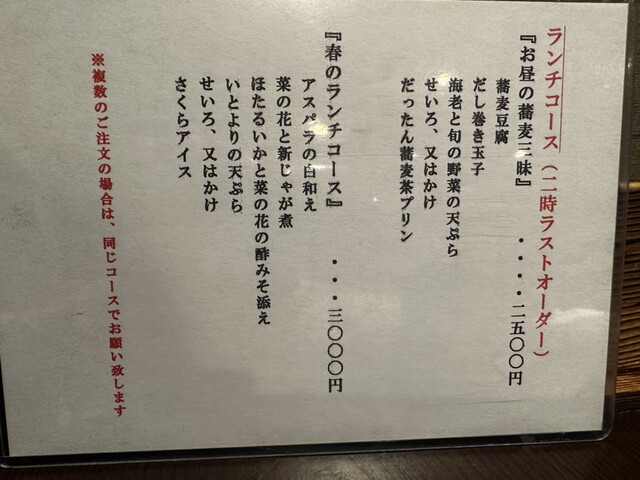 ランチコース(二時ラストオーダー)
『お昼の蕎麦三昧』 ・・・・二五〇〇円
蕎麦豆腐
だし巻き玉子
海老と旬の野菜の天ぷら
せいろ、又はかけ
だったん蕎麦茶プリン
『春のランチコース』 ・・・三〇〇〇円
アスパラの白和え
菜の花と新じゃが煮
ほたるいかと菜の花の酢みそ添え
いとよりの天ぷら
せいろ、又はかけ
さくらアイス
※複数のご注文の場合は、同じコースでお願い致します